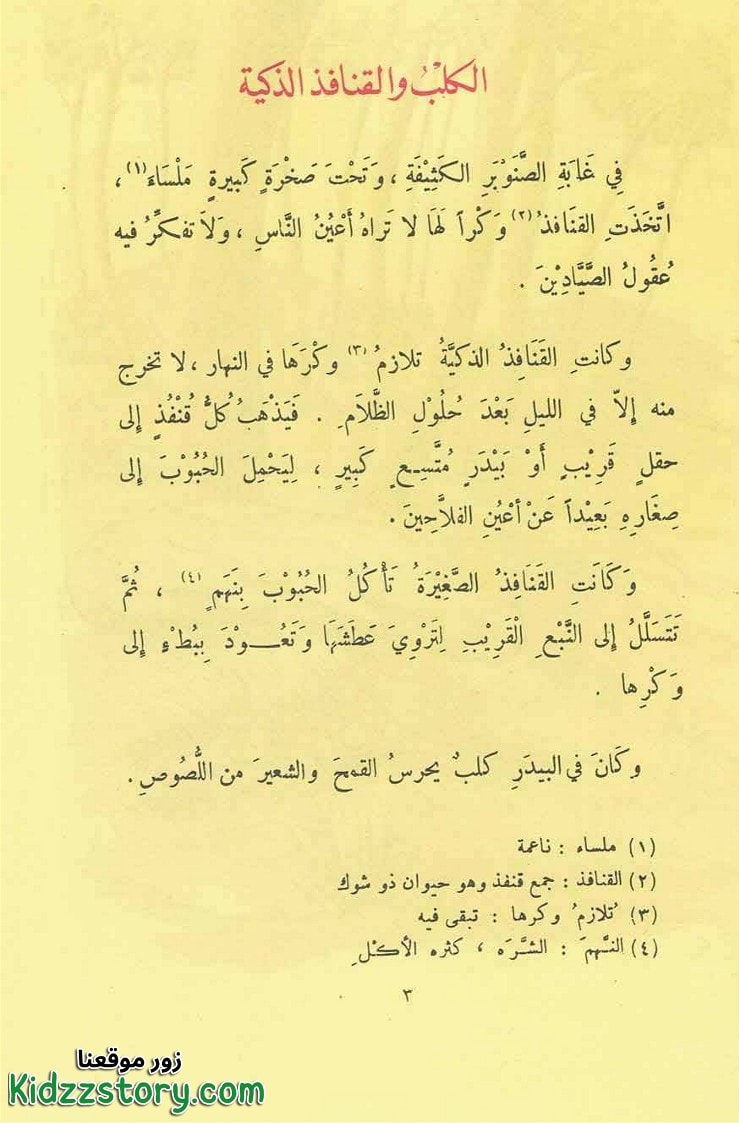 الكلبْ والقنافذ الذكية
فِي غَابَةِ الصَّنَوْبَرِ الكَثِيْفَةِ ، وَتَحْتَ صَخْرَةٍ كَبِيرةٍ مَلْسَاءَ (١) ،
اتَّخَذَتِ القنَافذُ (٢) وَكْراً لَهَا لا تَراهُ أَعْيُنُ النَّاسِ ، وَلاَ تفكرُّ فيه
عُقُولُ الصَّيَّادِيْنَ .
وكانتِ القَنَافِذُ الذكيَّةُ تلازمُ (٣) وكْرَهَا في النهار ، لا تخرج
منه إلاّ في الليلِ بَعْدَ حُلُوْلِ الظَّلَامِ . فَيَذْهَبُ كُلُّ قُنْفُذٍ إلى
حقلٍ قَرِيْبٍ أَوْ بَيْدَرٍ مُتَّسِعٍ كَبِيرٍ ، لِيَحْمِلَ الحُبُوْبَ إلى
صِغَارِهِ بَعِيْداً عَنْ أعْيُنِ الفلاَّحِينَ .
وَكَانَتِ القَنَافِذُ الصَّغِيْرَةُ تَأْكُلُ الحُبُوْبَ بِنَهَمٍ (٤) ، ثُمَّ
تَتَسَلَّلُ إلى النَّبْعِ الْقَرِيْبِ لِتَرْوِيَ عَطَشَهَا وَتَعُوْدَ بِبُطْءٍ إلى
وَكْرِها .
وكَانَ في البيدَرِ كلبٌ يحرسُ القمحَ والشعيرَ من اللُّصُوصِ .
(١) ملساء : ناعمة
(٢) القنافذ : جمع قنفذ وهو حيوان ذو شوك
(٣) تُلازمُ وكرها : تبقى فيه
(٤) النَّهمَ : الشَّرَه ، كثره الأكْلِ
٣
زور موقعنا
Kidzzstory.com